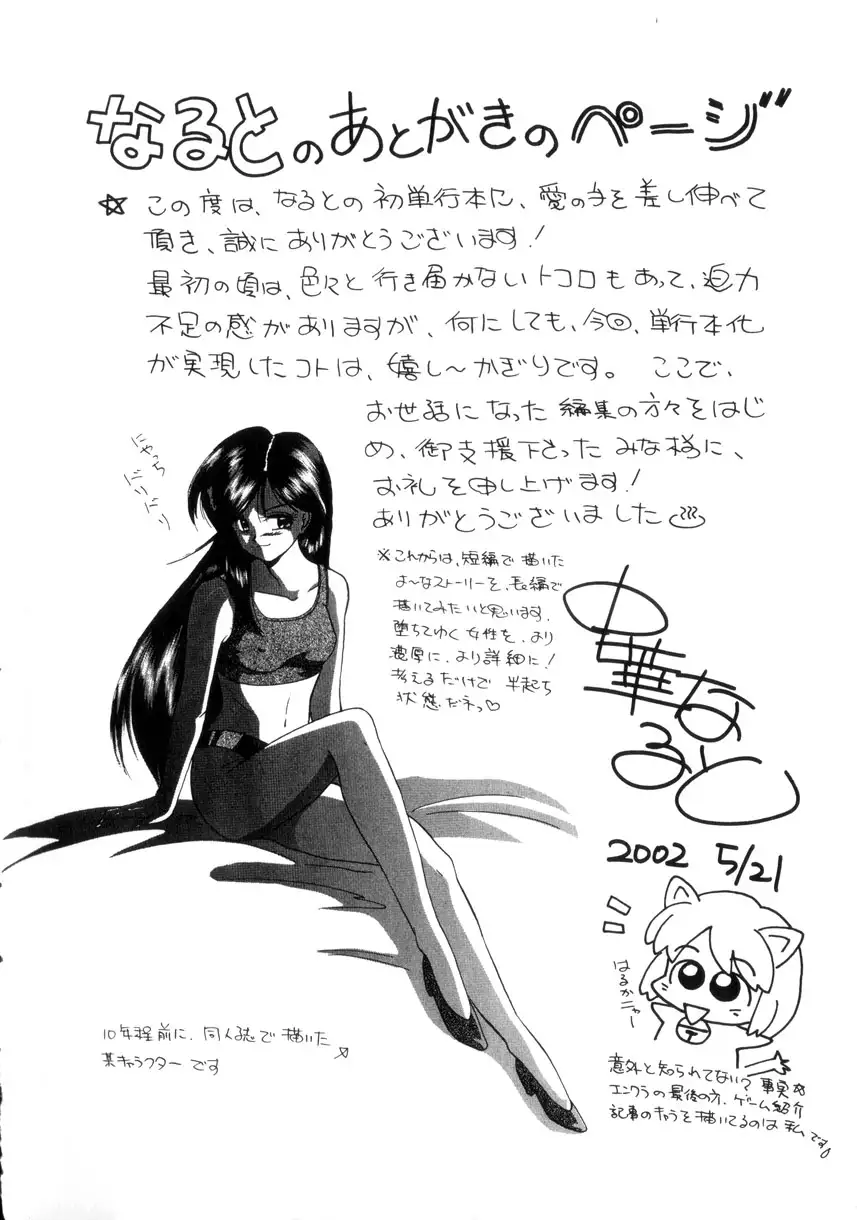 なるとのあとがきのページ
☆ この度は、なるとの初単行本に、愛の手を差し伸べて
頂き、誠にありがとうございます！
最初の頃は、色々と行き届かないトコロもあって、迫力
不足の感がありますが、何にしても、今回、単行本化
が実現したコトは、嬉し〜かぎりです。 ここで、
お世話になった編集の方々をはじ
め、御支援下さったみな様に、
お礼を申し上げます！
ありがとうございました
※これからは、短編で描いた
よ〜なストーリーを、長編で
描いてみたいと思います。
堕ちてゆく女性を、より
濃厚に、より詳細に！
考えるだけで半起ち
状態だネっ♡
にゃっち
ドリドリ
中華なると
2002 5/21
はるかニャー
10年程前に、同人誌で描いた
某キャラクターです
意外と知られてない？事実☆
エンクラの最後の方、ゲーム紹介
記事のキャラを描いてるのは私です。